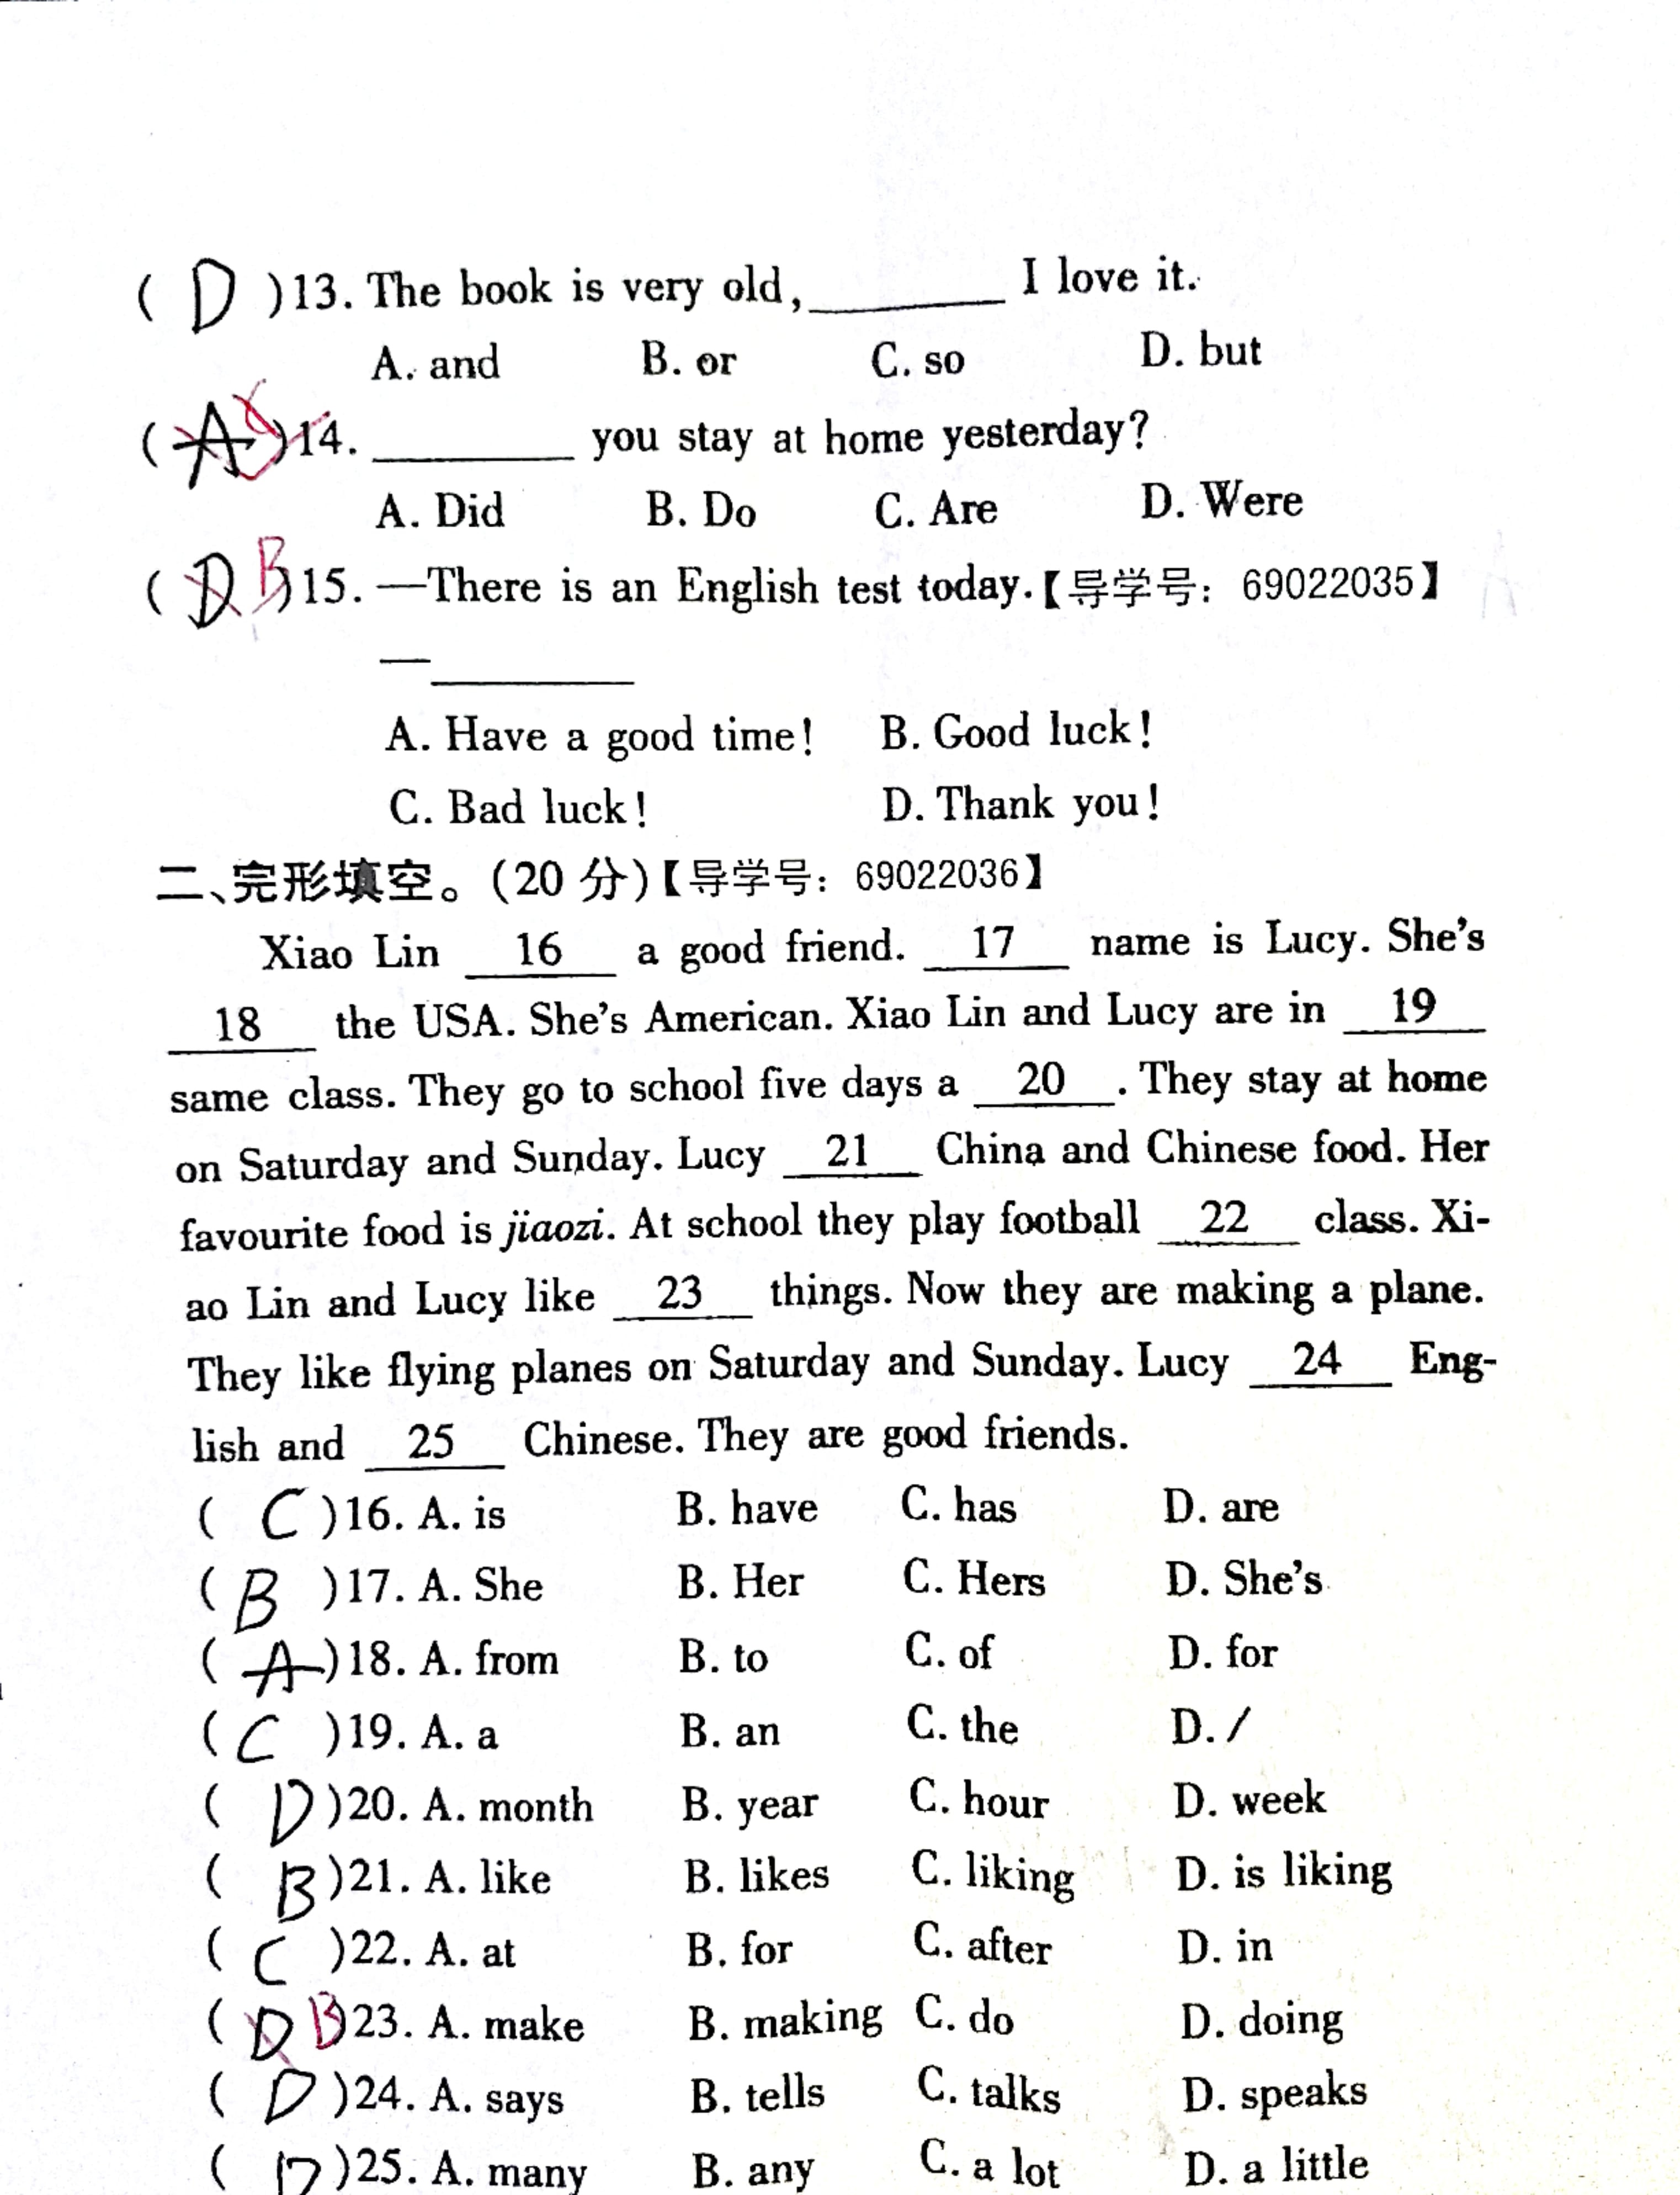 ( D )13. The book is very old, ________ I love it.
A. and B. or C. so D. but
( A )14. ________ you stay at home yesterday?
A. Did B. Do C. Are D. Were
( D B )15. —There is an English test today.【导学号：69022035】
—________
A. Have a good time! B. Good luck!
C. Bad luck! D. Thank you!
二、完形填空。(20 分)【导学号：69022036】
Xiao Lin 16 a good friend. 17 name is Lucy. She's
18 the USA. She's American. Xiao Lin and Lucy are in 19
same class. They go to school five days a 20 . They stay at home
on Saturday and Sunday. Lucy 21 China and Chinese food. Her
favourite food is jiaozi. At school they play football 22 class. Xi-
ao Lin and Lucy like 23 things. Now they are making a plane.
They like flying planes on Saturday and Sunday. Lucy 24 Eng-
lish and 25 Chinese. They are good friends.
( C )16. A. is B. have C. has D. are
( B )17. A. She B. Her C. Hers D. She's
( A )18. A. from B. to C. of D. for
( C )19. A. a B. an C. the D. /
( D )20. A. month B. year C. hour D. week
( B )21. A. like B. likes C. liking D. is liking
( C )22. A. at B. for C. after D. in
( D B )23. A. make B. making C. do D. doing
( D )24. A. says B. tells C. talks D. speaks
( D )25. A. many B. any C. a lot D. a little